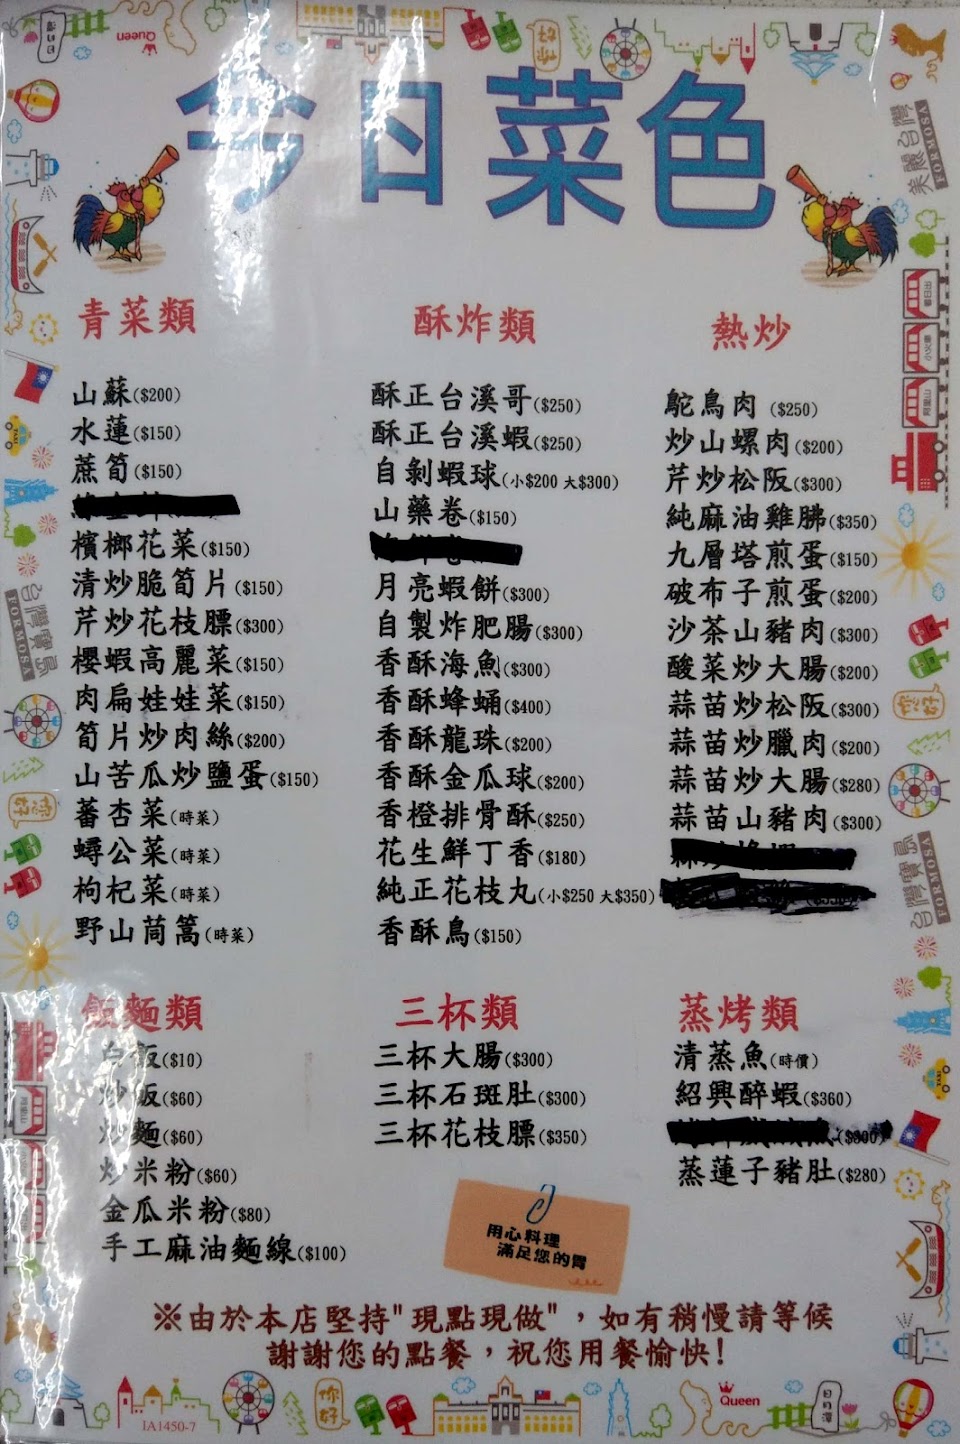 今日菜色
青菜類
山蘇($200)
水蓮($150)
蔗筍($150)
檳榔花菜($150)
清炒脆筍片($150)
芹炒花枝膘($300)
櫻蝦高麗菜($150)
肉扁娃娃菜($150)
筍片炒肉絲($200)
山苦瓜炒鹽蛋($150)
蕃杏菜(時菜)
蟳公菜(時菜)
枸杞菜(時菜)
野山茼篙(時菜)
酥炸類
酥正台溪哥($250)
酥正台溪蝦($250)
自剝蝦球(小$200 大$300)
山藥卷($150)
月亮蝦餅($300)
自製炸肥腸($300)
香酥海魚($300)
香酥蜂蛹($400)
香酥龍珠($200)
香酥金瓜球($200)
香橙排骨酥($250)
花生鮮丁香($180)
純正花枝丸(小$250 大$350)
香酥鳥($150)
熱炒
鴕鳥肉 ($250)
炒山螺肉($200)
芹炒松阪($300)
純麻油雞胇($350)
九層塔煎蛋($150)
破布子煎蛋($200)
沙茶山豬肉($300)
酸菜炒大腸($200)
蒜苗炒松阪($300)
蒜苗炒臘肉($200)
蒜苗炒大腸($280)
蒜苗山豬肉($300)
飯麵類
白飯($10)
炒飯($60)
炒麵($60)
炒米粉($60)
金瓜米粉($80)
手工麻油麵線($100)
三杯類
三杯大腸($300)
三杯石斑肚($300)
三杯花枝膘($350)
蒸烤類
清蒸魚(時價)
紹興醉蝦($360)
($300)
蒸蓮子豬肚($280)
用心料理
滿足您的胃
※由於本店堅持"現點現做"，如有稍慢請等候
謝謝您的點餐，祝您用餐愉快!
IA1450-7
Queen
你好
日月潭
Queen
日月潭
你好
美麗台灣
FORMOSA
台灣寶島
FORMOSA
台灣寶島
FORMOSA
看日出
小火車
阿里山
你好
你好
TAXI
TAXI
阿里山